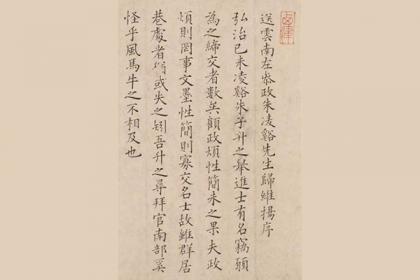 送雲南左叅政朱凌谿先生歸維揚序
弘治己未凌谿朱子升之舉進士有名竊願
為之締交者數矣顧政煩性簡未之果夫政
煩則罔事文墨性簡則寡交名士故雖群居
巷處者猶或失之矧吾升之尋拜官南部奚
怪乎風馬牛之不相及也